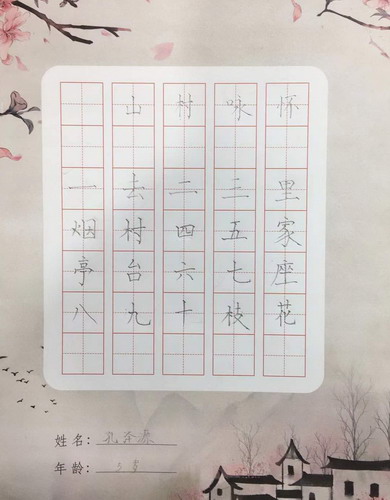 山村咏怀
一去二三里
烟村四五家
亭台六七座
八九十枝花
姓名：孔泽源
年龄：